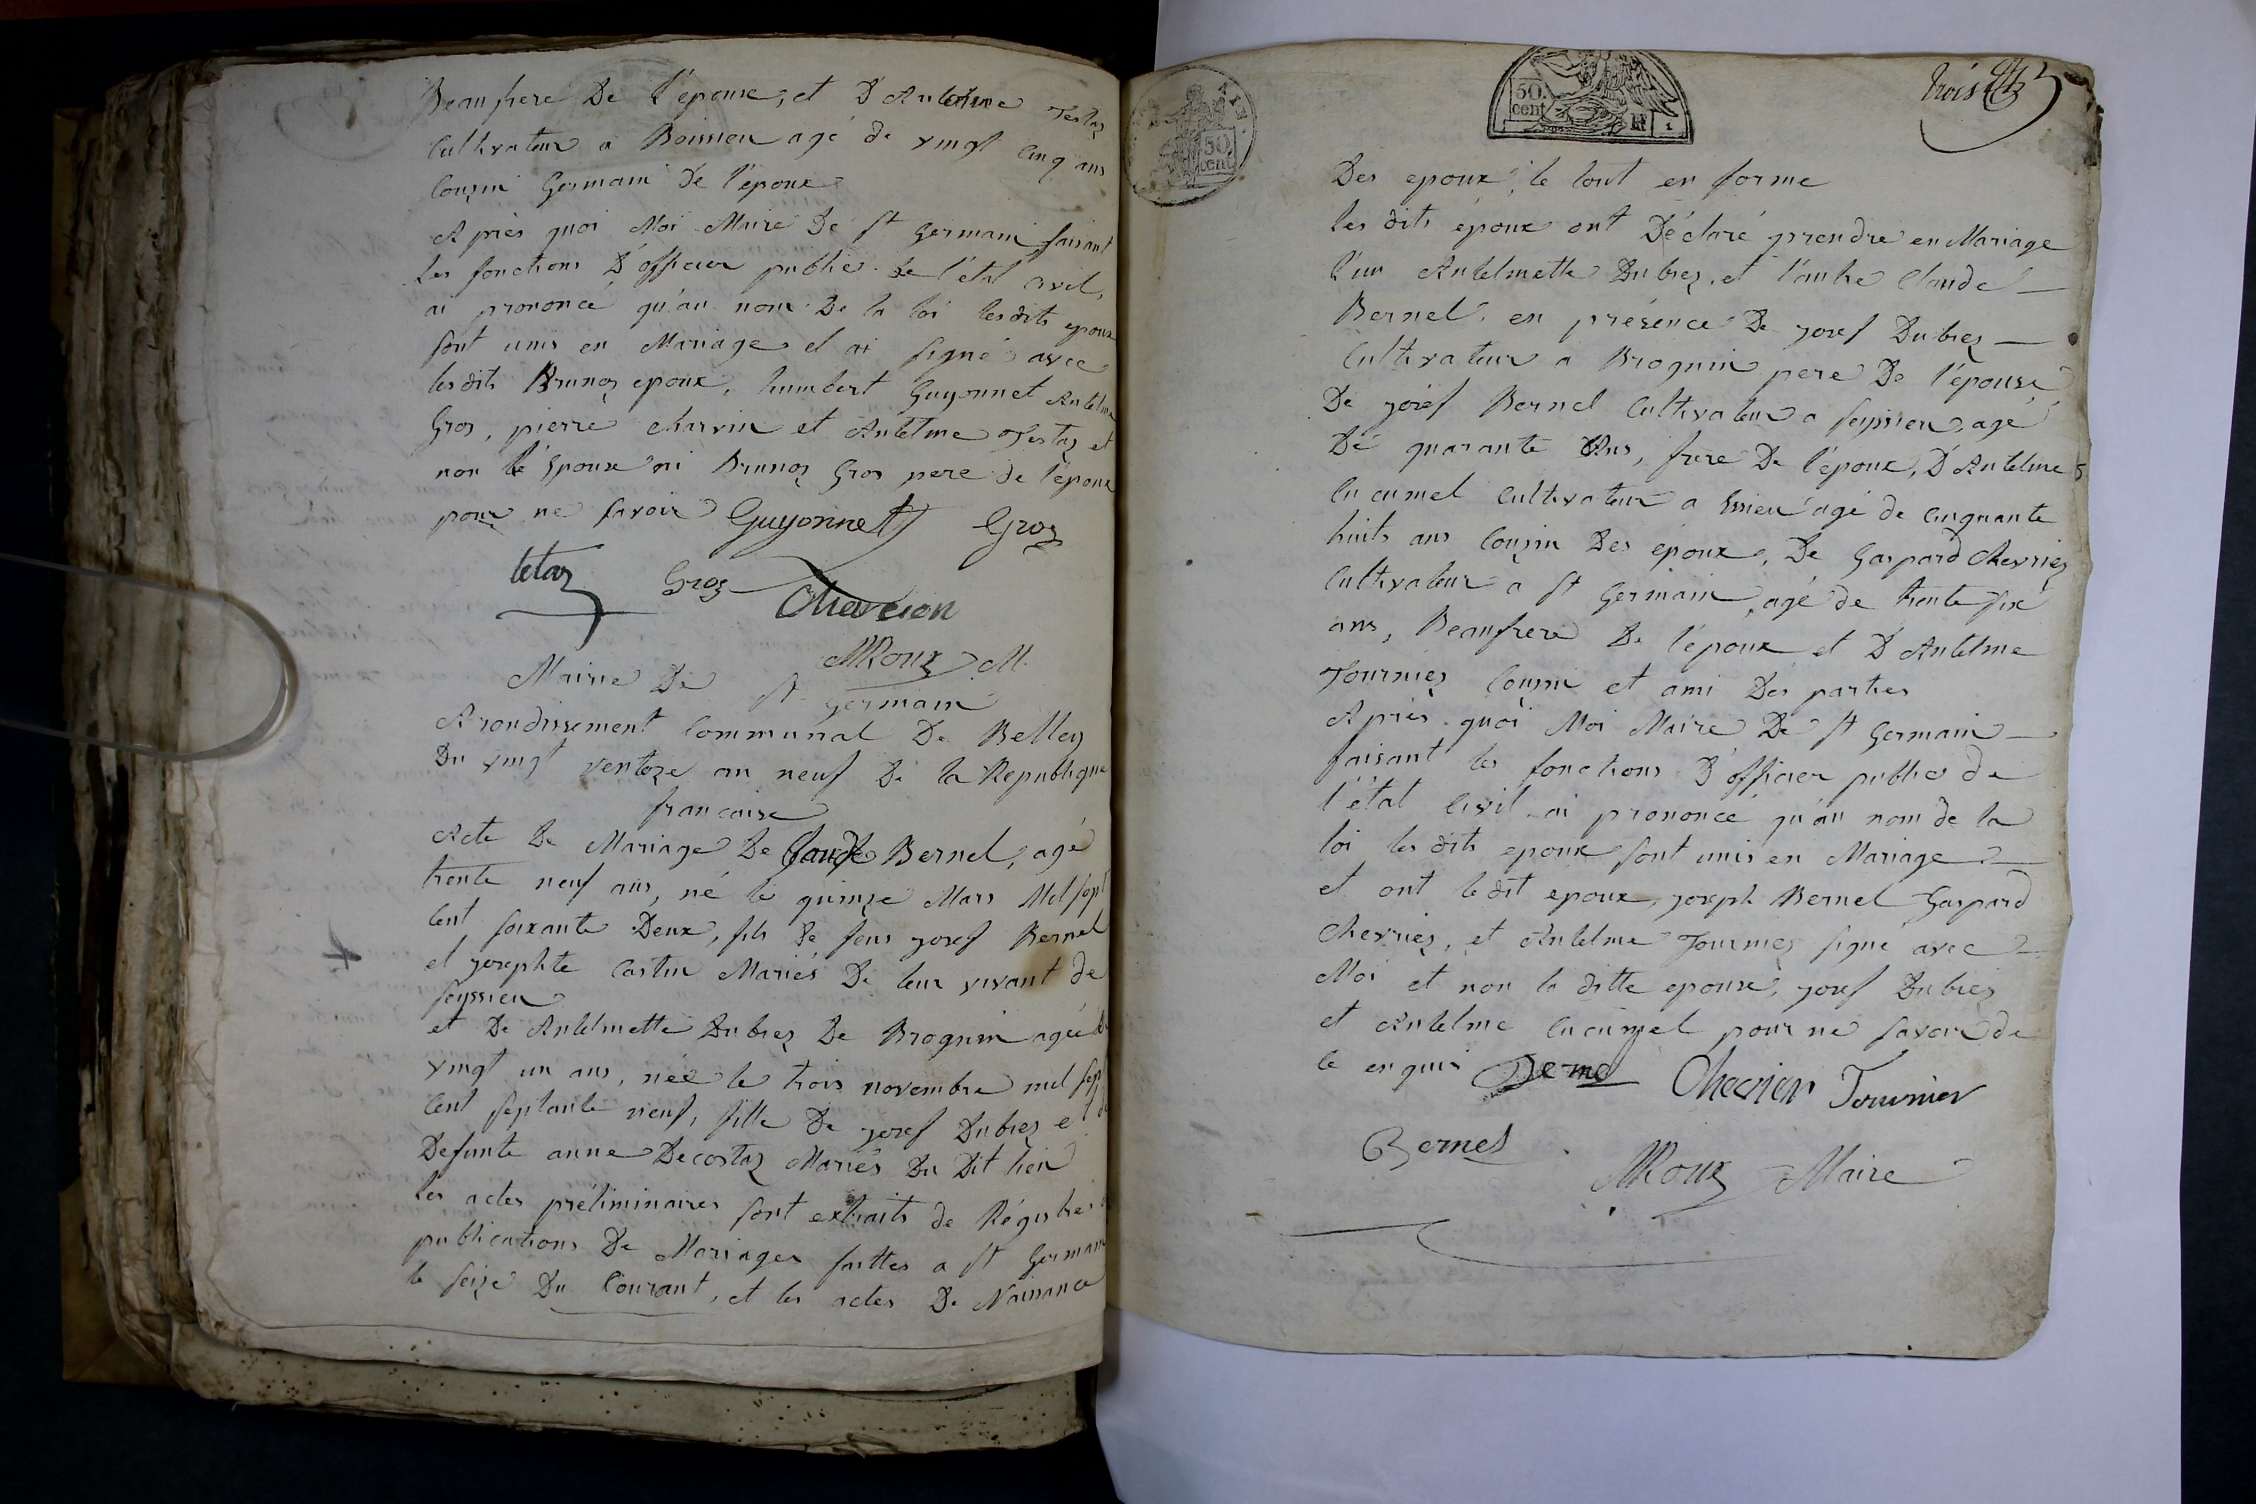 Beaufrere De l'épouse, et D'Antelme Testaz
Cultivateur a Boissieu agé de vingt cinq ans
Cousin Germain De l'epoux
Après quoi Moi Maire De St Germain faisant
les fonctions D'officier public de l'état civil,
ai prononcé qu'au nom De la loi lesdits epoux
sont unis en Mariage et ai signé avec
lesdits Brunoz epoux, humbert Guyonnet Antelme
Gros, pierre charvin et Antelme Testaz et
non le Epouse ni Brunoz Gros pere de l'épouse
pour ne savoir Guyonnet Groz
tetaz Groz
MRoux M.
Mairie De St germain
Arondissement Communal De Belley
Du vingt ventoze an neuf De la Republique
francaise
Acte De Mariage De Claude Bernel, agé
trente neuf ans, né le quinze Mars Mil sept
Cent soixante Deux, fils De feus josef Bernel
et josephte Castin Mariés De leur vivant de
seyssieu
et De Antelmette Dubrez De Brognin agée de
vingt un ans, née le trois novembre mil sept
Cent septante neuf, fille De josef Dubrez et de
Defunte anne Decostaz Mariés Du Dit lieu
les actes préliminaires sont extraits de Régistres
publications De Mariages faittes a St Germain
le seize Du Courant, et les actes De Naissance
50. cent
50. cent
trois
Des epoux, le tout en forme
les dits époux ont Déclaré prendre en Mariage
l'un Antelmette Dubrez, et l'autre Claude
Bernel, en présence De josef Dubrez
Cultivateur a Brognin pere De l'épouse,
De josef Bernel Cultivateur a seyssieu, agé
De quarante Ans, frere De l'époux, D'Antelme
Cucumel Cultivateur a Emieu agé de cinquante
huits ans Cousin Des epoux, De Gaspard Chevriez
Cultivateur a St Germain, agé de trente six
ans, Beaufrere De l'époux et D'Antelme
Tourniez Cousin et ami Des parties
Après quoi Moi Maire De St Germain
faisant les fonctions D'officier public de
l'état Civil ai prononcé qu'au nom de la
loi les dits epoux sont unis en Mariage
et ont ledit epoux, joseph Bernel Gaspard
Chevriez, et Antelme Tourniez signé avec
Moi et non la ditte epouse, josef Dubrez
et Antelme Cucumel pour ne savoir de
ce enquis Chevrier Tournier
Bernel
MRoux Maire